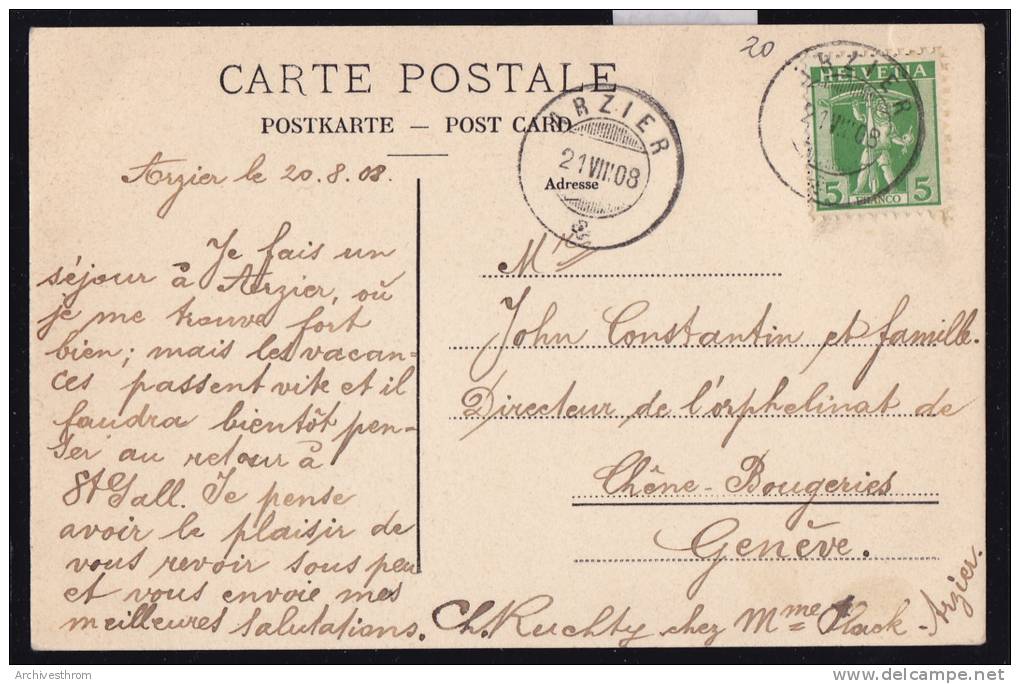 20
CARTE POSTALE
POSTKARTE — POST CARD
ARZIER
21 VIII 08
HELVETIA
5 FRANCO 5
ARZIER
21 VIII 08
Adresse
Arzier le 20.8.08.
Je fais un
séjour à Arzier, où
je me trouve fort
bien; mais les vacan-
ces passent vite et il
faudra bientôt pen-
ser au retour à
St Gall. Je pense
avoir le plaisir de
vous revoir sous peu
et vous envoie mes
meilleures salutations.
Ch. Ruchty chez Mme
Arzier.
John Constantin et famille.
Directeur de l'orphelinat de
Chêne-Bougeries
Genève.
Archivesthrom
delcampe.net